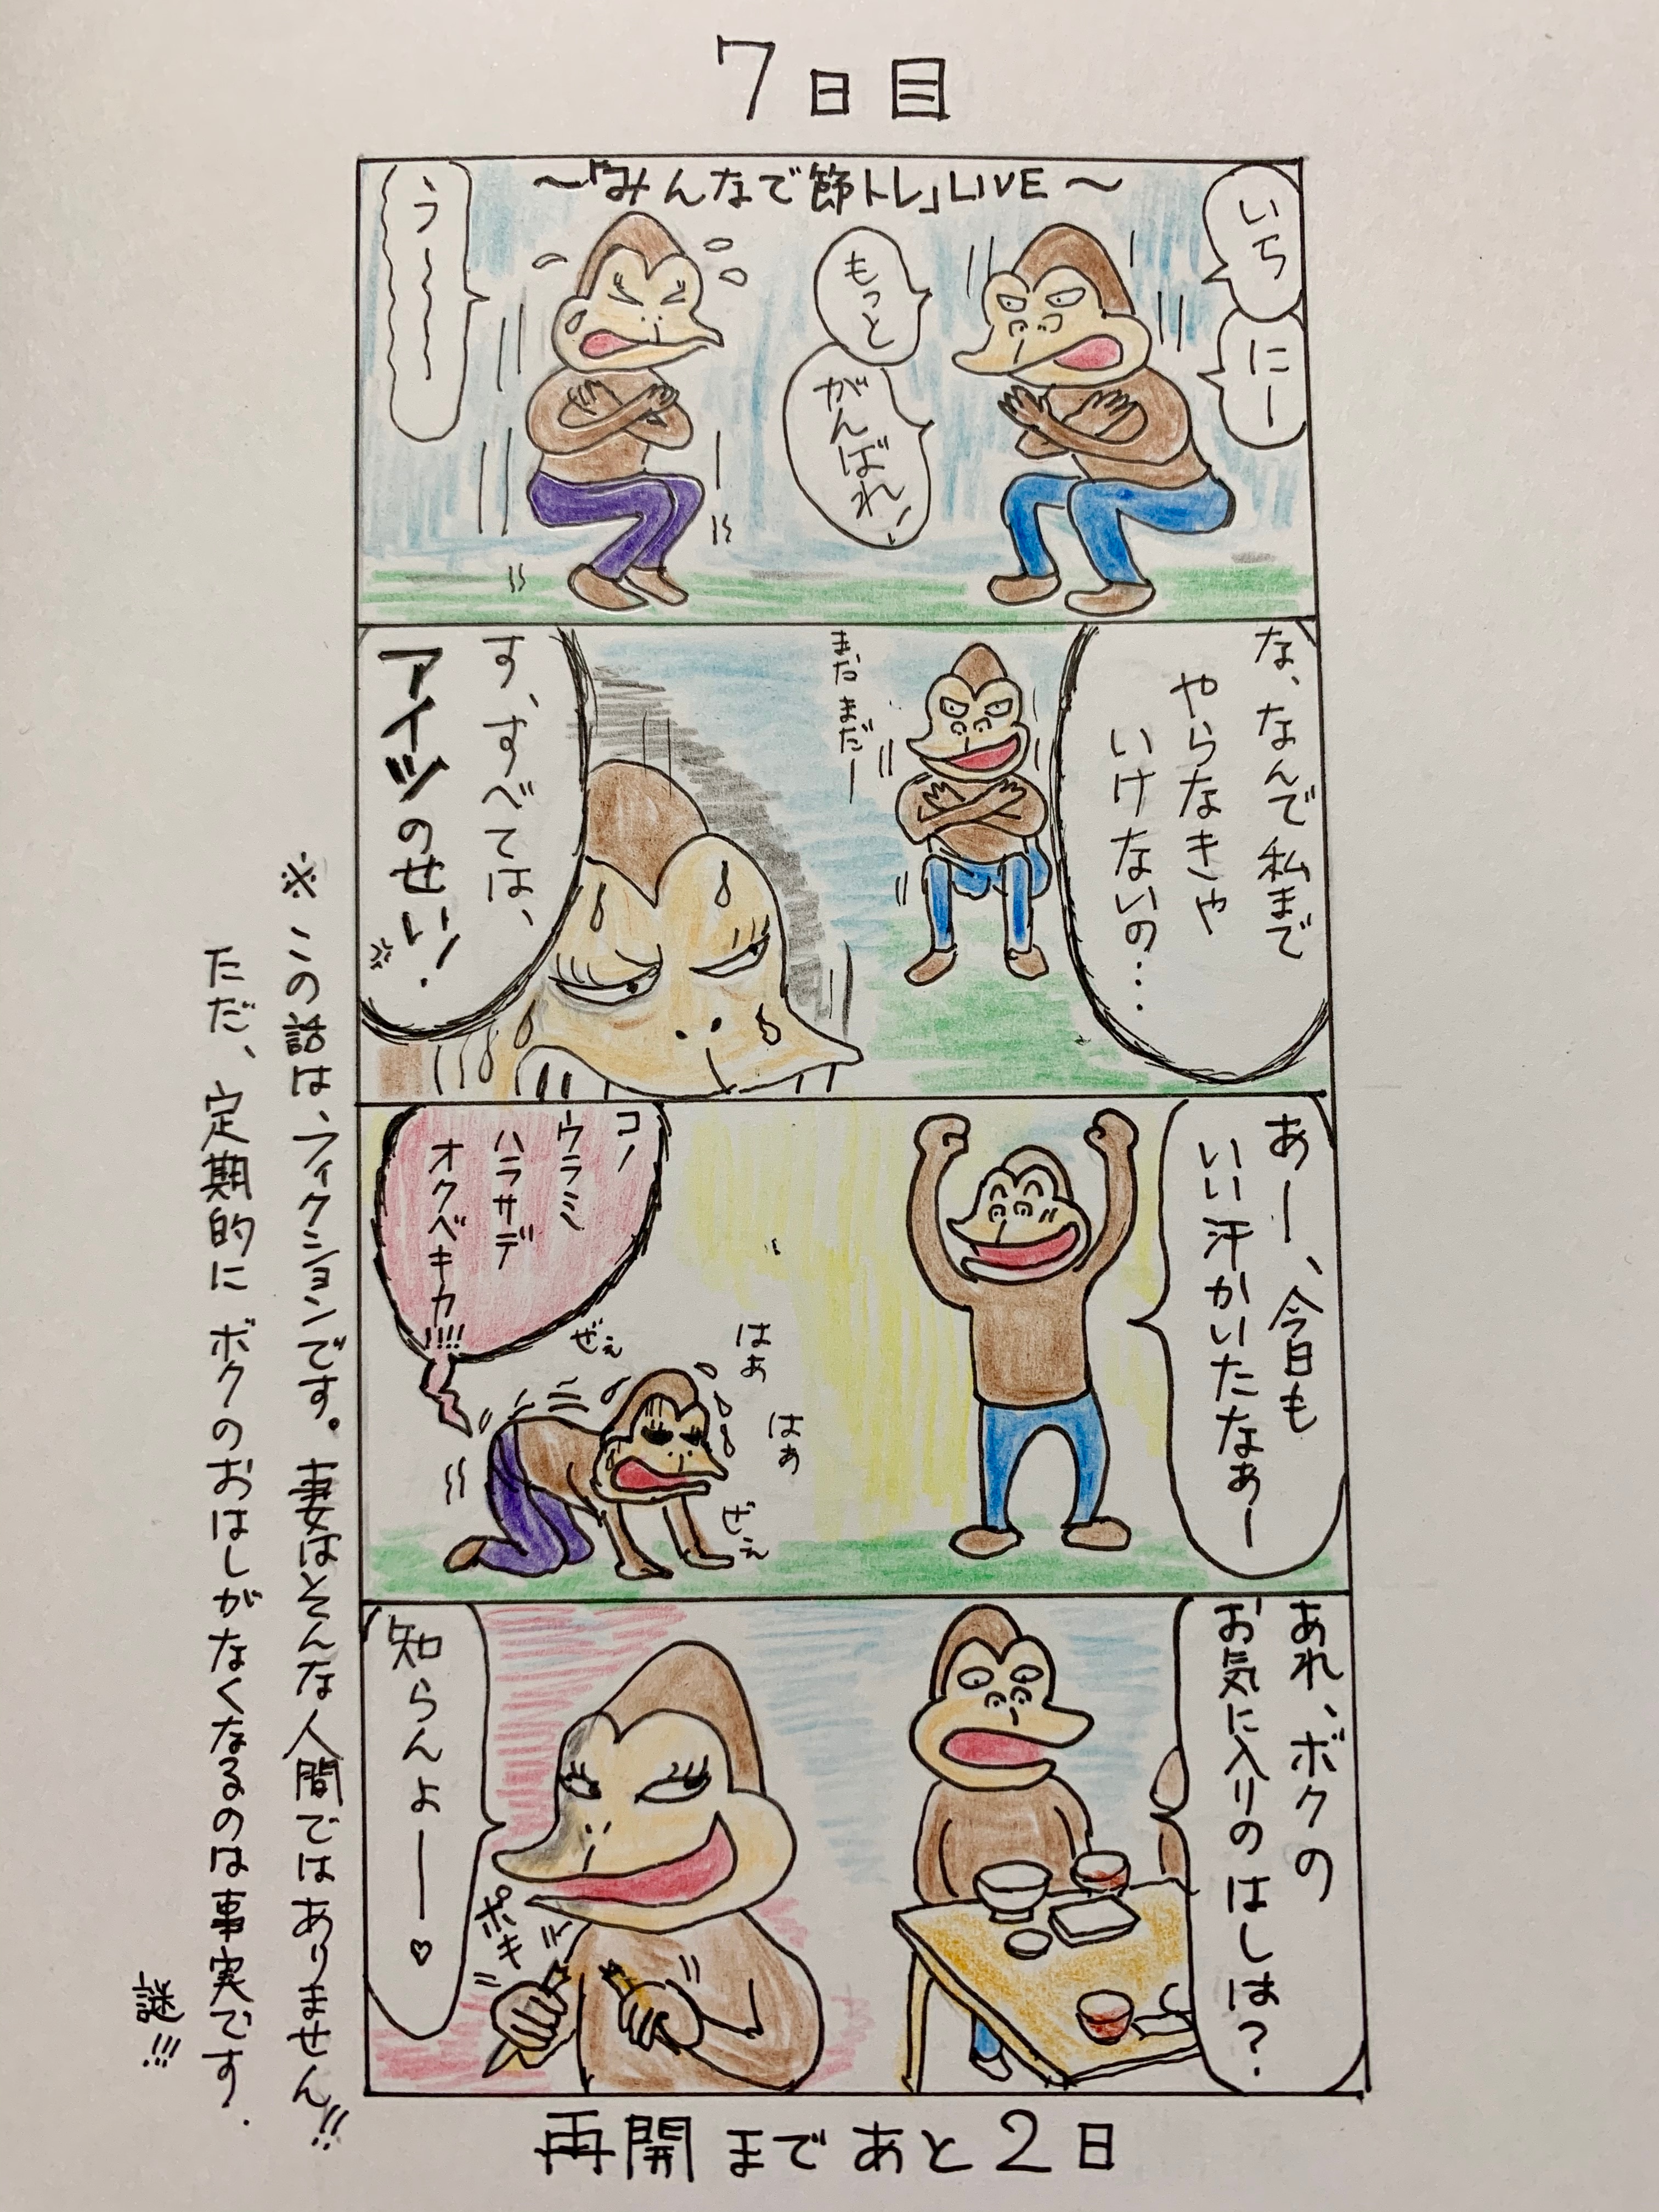 7日目
〜「みんなで節トレ」LIVE〜
いち
にー
もっと
がんばれ！
う〜〜〜〜
な、なんで私まで
やらなきゃ
いけないの…
まだまだー
す、すべては、
アイツのせい！
あー、今日も
いい汗かいたなぁー
はぁ
はぁ
ぜぇ
ぜぇ
コノ
ウラミ
ハラサデ
オクベキカ!!!!
あれ、ボクの
お気に入りのはしは？
ポキ
知らんよーー♡
※この話は、フィクションです。妻はそんな人間ではありません!!
ただ、定期的にボクのおはしがなくなるのは事実です.
謎!!!
再開まであと2日